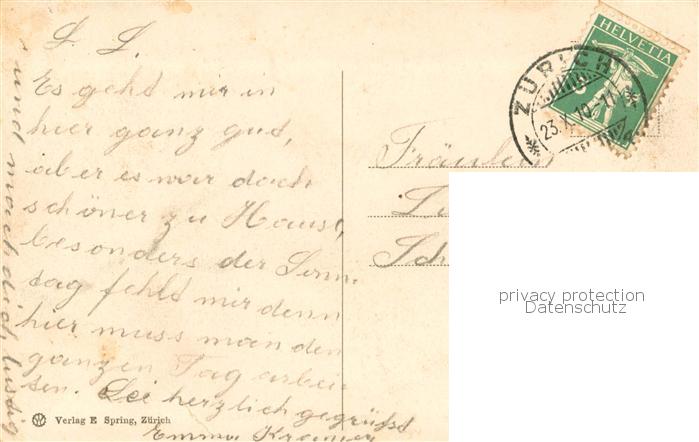 L. L.
Es geht mir in
hier ganz gut,
aber es war doch
schöner zu Hause,
besonders der Sonn-
tag fehlt mir denn
hier muss man den
ganzen Tag arbei-
ten. Sei herzlich gegrüsst
Emma
und mach dich lustig
Verlag E Spring, Zürich
HELVETIA
5
ZÜRICH
23.X.10-11
Fräulein
privacy protection
Datenschutz